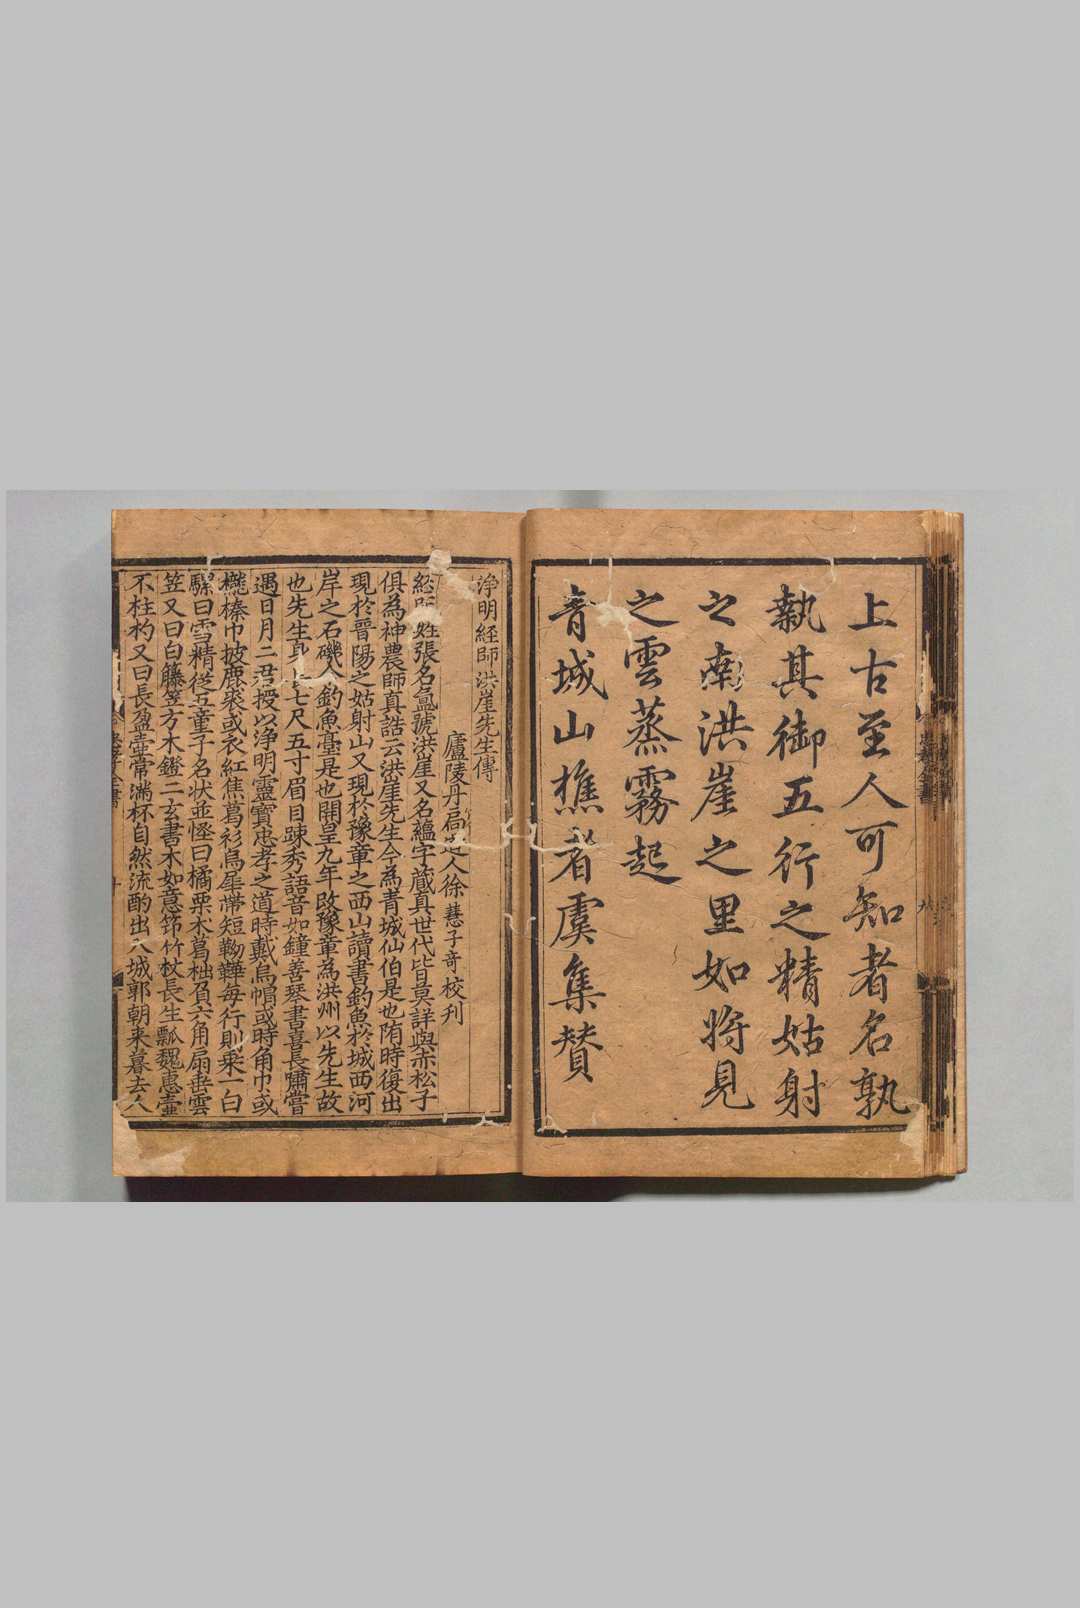 上古至人可知者名孰
執其御五行之精姑射
之南洪崖之里如將見
之雲蒸霧起
青城山樵者虞集贊
淨明經師洪崖先生傳
廬陵丹局道人徐慧子奇校刊
總師姓張名氳號洪崖又名蘊字藏真世代皆莫詳與赤松子
俱為神農師真誥云洪崖先生今為青城仙伯是也隋時復出
現於晉陽之姑射山又現於豫章之西山讀書釣魚於城西河
岸之石磯今釣魚臺是也開皇九年改豫章為洪州以先生故
也先生身長七尺五寸眉目踈秀語音如鐘善琴書喜長嘯嘗
遇日月二君授以淨明靈寶忠孝之道時戴烏帽或時角巾或
櫳榛巾披鹿裘或衣紅焦葛衫烏犀帶短靿鞾每行則乘一白
騾曰雪精從五童子名状並怪曰橘栗木葛柮負六角扇垂雲
笠又曰白籐笠方木鐙二玄書木如意筇竹杖長生瓢魏惠壷
不柱杓又曰長盈壷常滿杯自然流酌出入城郭朝来暮去人